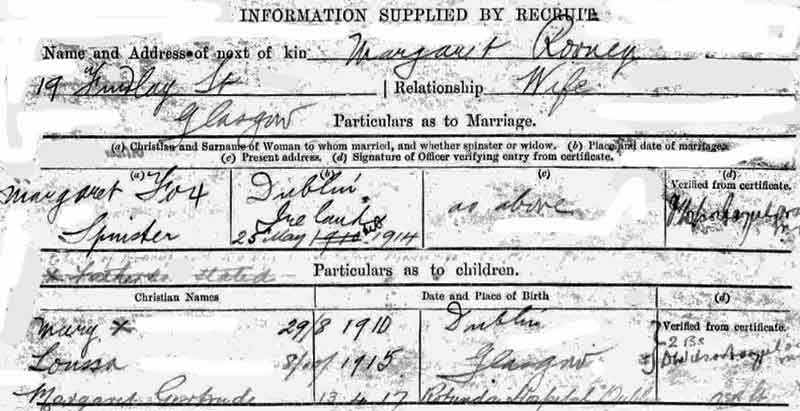 INFORMATION SUPPLIED BY RECRUIT.
Name and Address of next of kin Margaret Rooney
19 Findlay St | Relationship Wife
Glasgow Particulars as to Marriage.
(a) Christian and Surname of Woman to whom married, and whether spinster or widow. (b) Place and date of marriage.
(c) Present address. (d) Signature of Officer verifying entry from certificate.
(a) (b) (c) (d)
Verified from certificate.
Margaret Fox Dublin as above
Spinster Ireland
25 May 1910 1914
Particulars as to children.
Christian Names Date and Place of Birth (d)
Mary x 29/8 1910 Dublin Verified from certificate.
Louisa 1915 Glasgow
Margaret Gertrude 13.4.17 Rotunda Hospital